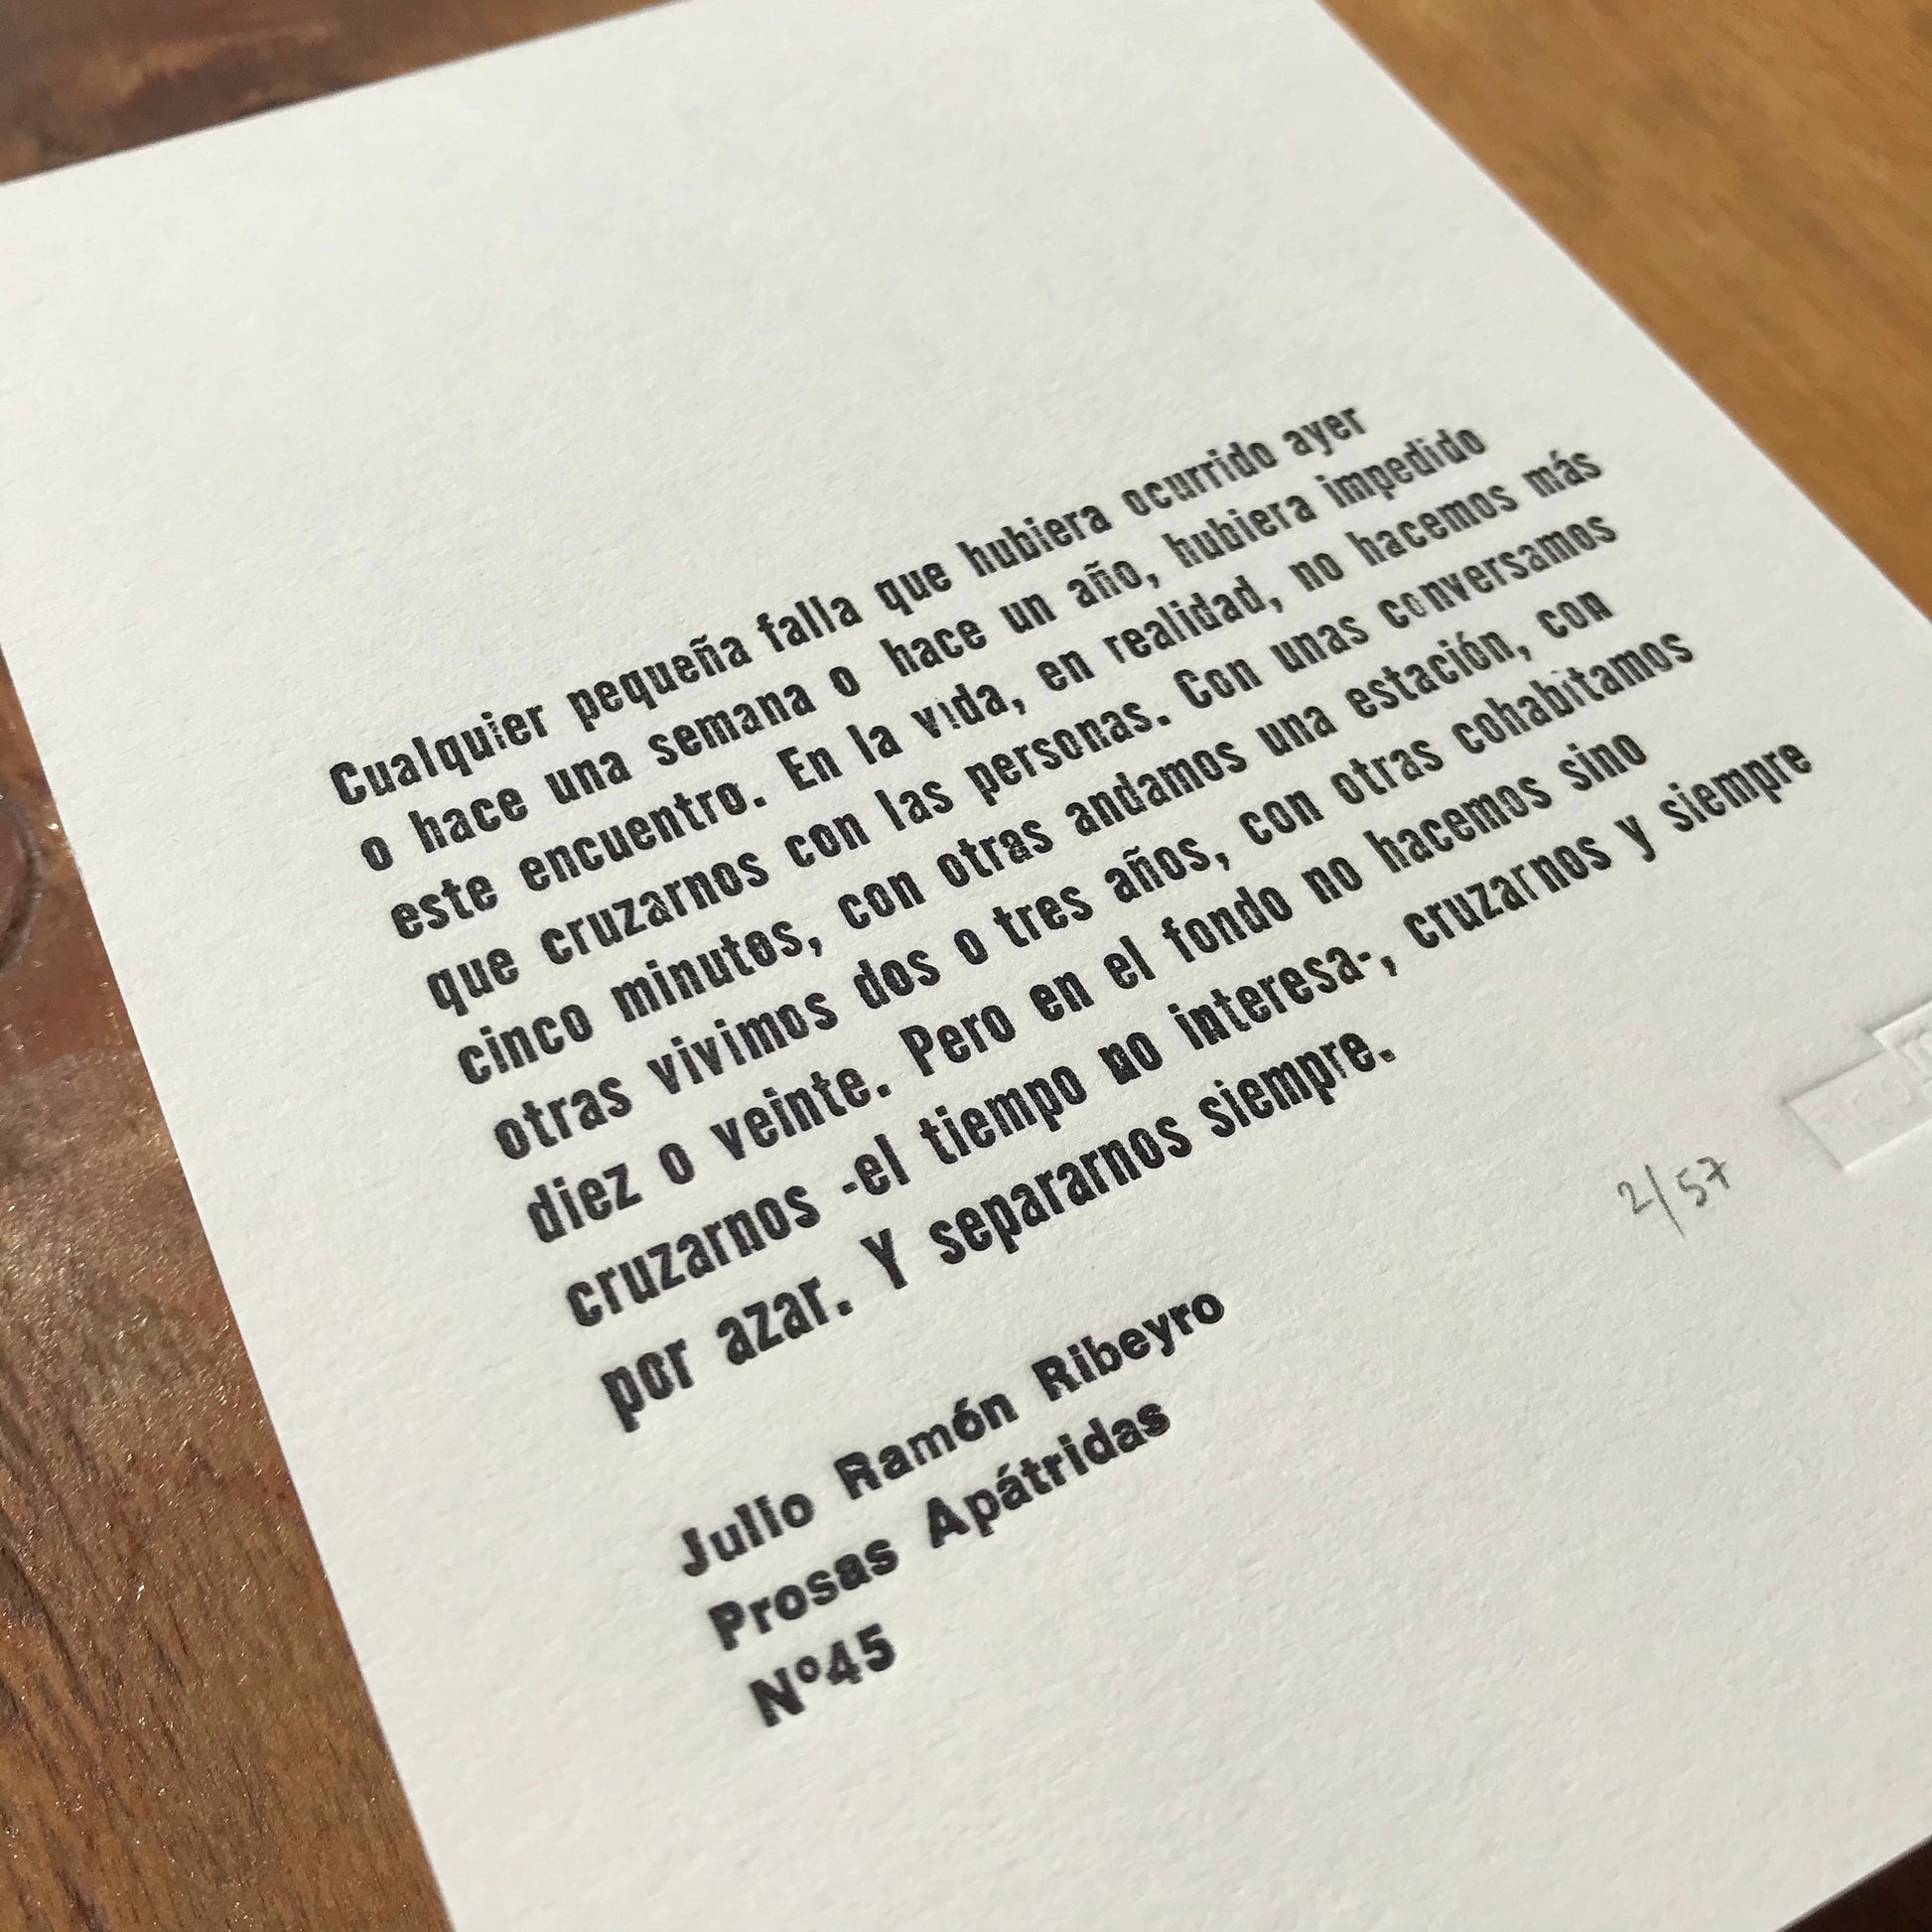 Cualquier pequeña falla que hubiera ocurrido ayer
o hace una semana o hace un año, hubiera impedido
este encuentro. En la vida, en realidad, no hacemos más
que cruzarnos con las personas. Con unas conversamos
cinco minutos, con otras andamos una estación, con
otras vivimos dos o tres años, con otras cohabitamos
diez o veinte. Pero en el fondo no hacemos sino
cruzarnos -el tiempo no interesa-, cruzarnos y siempre
por azar. Y separarnos siempre.
2/57
Julio Ramón Ribeyro
Prosas Apátridas
Nº45